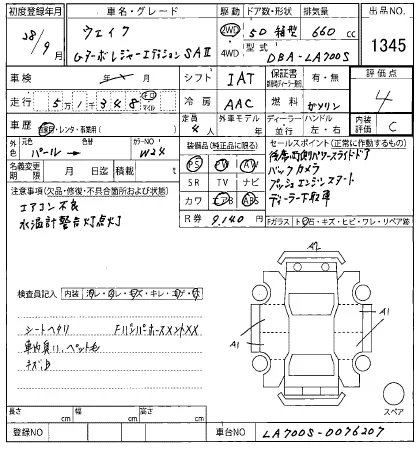 初度登録年月 車名・グレード 駆動 ドア数・形状 排気量 出品NO.
28/9月 ウェイク 2WD 5D 箱型 660 cc 1345
Gターボ レジャーエディションSAⅡ 4WD 型式 DBA-LA700S
車検 年 月 シフト IAT 保証書 有・無 評価点
走行 5万1千348 キロ マイル 冷房 AAC 燃料 ガソリン 4
車歴 自家用・レンタ・事業用( ) 定員 4人 外車モデル 年 ディーラー 並行 ハンドル 左・右 内装評価 C
外色 元色 パール 色替 カラーNO W24 装備品(純正品に限る) セールスポイント(正常に作動するもの)
PS PW AW 後席両側パワースライドドア
名義変更期限 月 日迄 積載 t SR TV ナビ バックカメラ
プッシュエンジンスタート
注意事項(欠品・修復・不具合箇所および状態) カワ エアB ABS ディーラー下取車
エアコン不良 R券 9,140円 Fガラス トビ石・キズ・ヒビ・ワレ・リペア跡
水温計警告灯点灯
A2
検査員記入 内装 汚レ・コレ・キズ・キレ・コゲ・穴
A1 A1
シートヘタリ FバンパーホースメントXX
車内臭い、ペット毛
キズ、凹
スペア
長さ cm 幅 cm 高さ cm
登録NO 車台NO LA700S-0076207